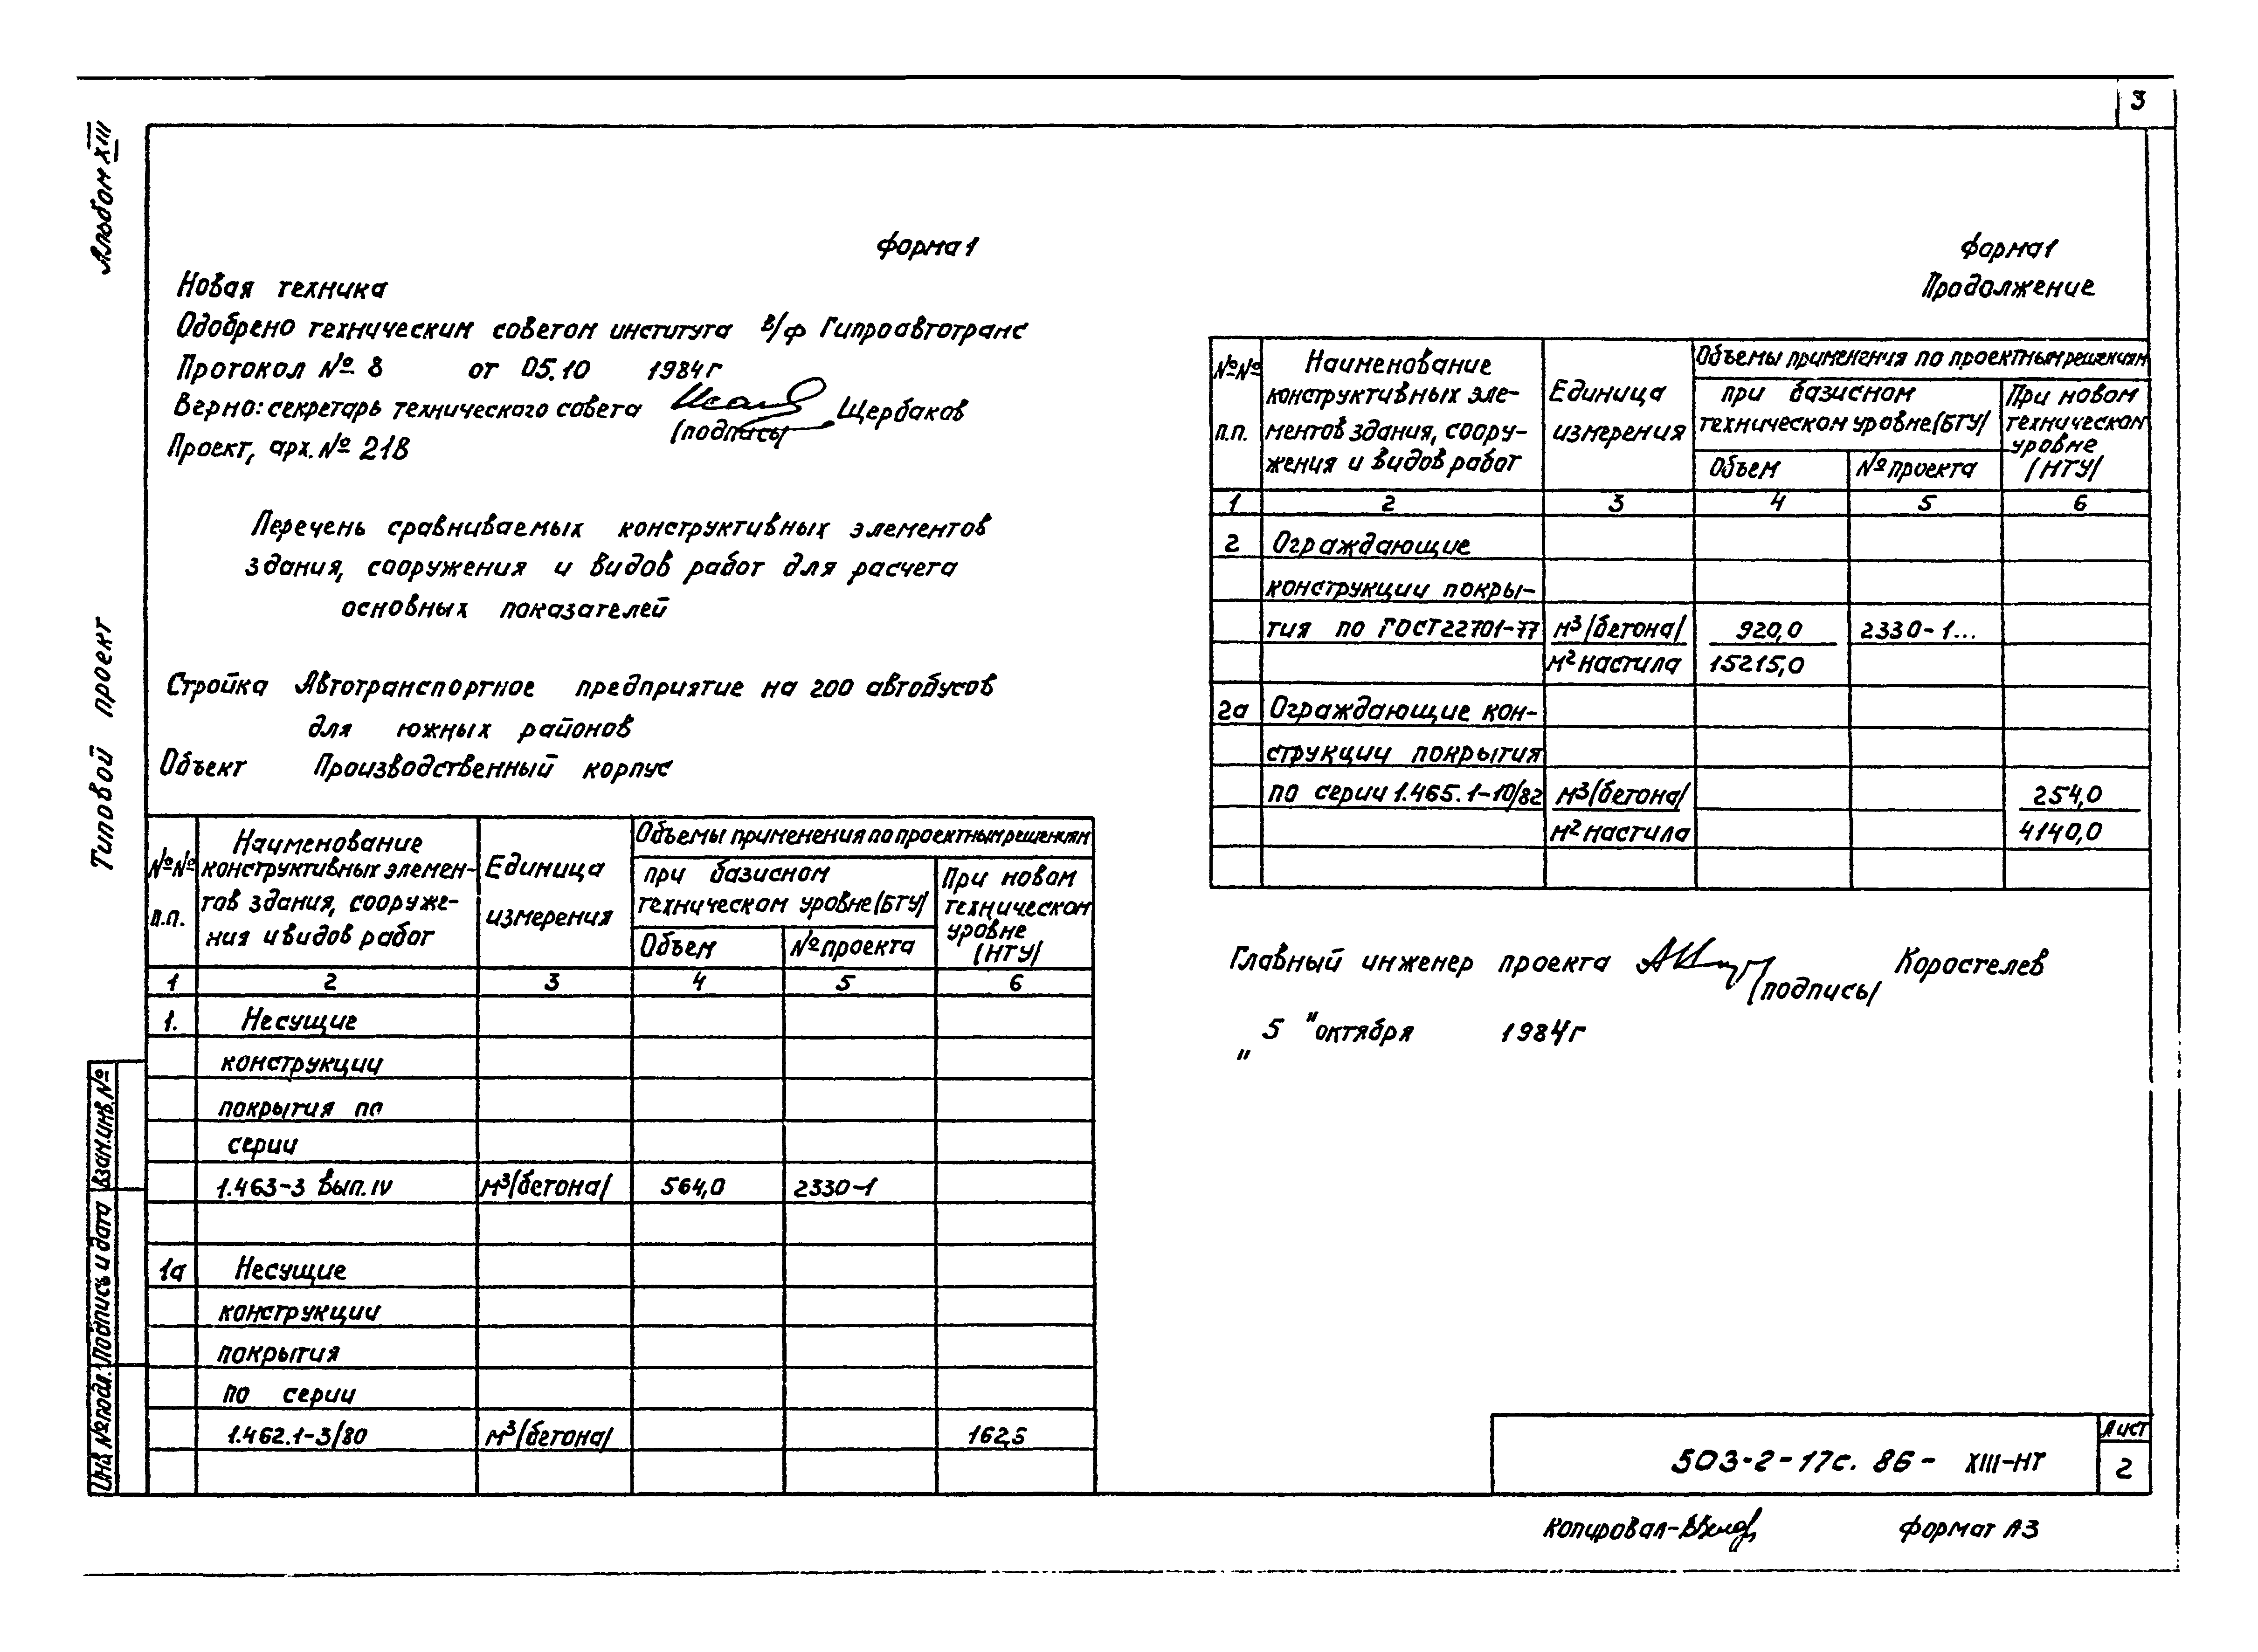 3
Альбом XIII
Типовой проект
Инв. № подл. Подпись и дата Взам.инв.№
Форма 1
Новая техника
Одобрено техническим советом института в/ф Гипроавтотранс
Протокол № 8 от 05.10 1984г
Верно: секретарь технического совета Щербаков
(подпись)
Проект, арх. № 21В
Перечень сравниваемых конструктивных элементов
здания, сооружения и видов работ для расчета
основных показателей
Стройка Автотранспортное предприятие на 200 автобусов
для южных районов
Объект Производственный корпус
№№ п.п.
Наименование
конструктивных элемен-
тов здания, сооруже-
ния и видов работ
Единица
измерения
Объемы применения по проектным решениям
при базисном
техническом уровне (БТУ)
Объем №проекта
При новом
техническом
уровне
(НТУ)
1 2 3 4 5 6
1. Несущие
конструкции
покрытия по
серии
1.463-3 вып. IV м³(бетона) 564,0 2330-1
1а Несущие
конструкции
покрытия
по серии
1.462.1-3/80 м³(бетона) 162,5
Форма 1
Продолжение
№№ п.п.
Наименование
конструктивных эле-
ментов здания, соору-
жения и видов работ
Единица
измерения
Объемы применения по проектным решениям
при базисном
техническом уровне (БТУ)
Объем №проекта
При новом
техническом
уровне
(НТУ)
1 2 3 4 5 6
2 Ограждающие
конструкции покры-
тия по ГОСТ 22701-77 м³(бетона) 920,0 2330-1...
м² настила 15215,0
2а Ограждающие кон-
струкции покрытия
по серии 1.465.1-10/82 м³(бетона) 254,0
м² настила 4140,0
Главный инженер проекта Коростелев
(подпись)
" 5 " октября 1984г
503-2-17с. 86- XIII-НТ
Лист
2
Копировал- Формат А3